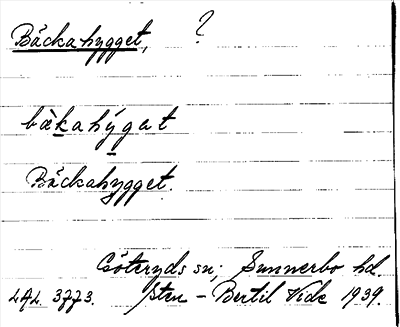 Bäckahygget, ?
bàkahýgat
Bäckahygget.
Göteryds sn; Sunnerbo hd.
LAL 3773. Sten-Bertil Vide 1939.